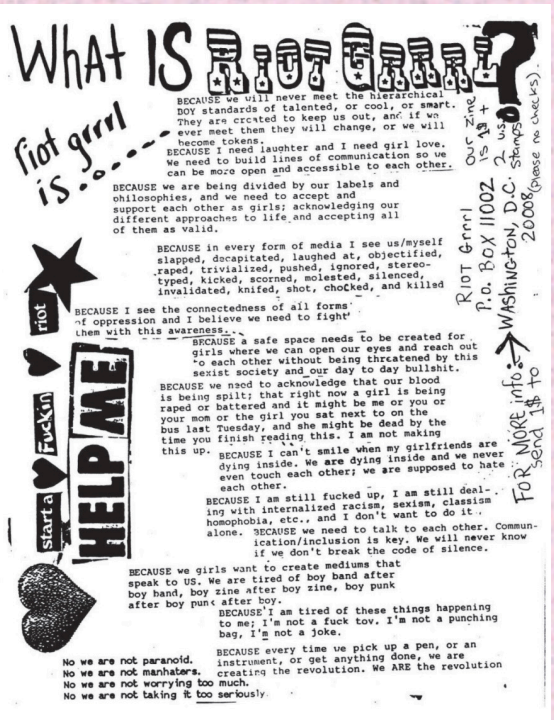 WHAT IS RIOT GRRRL?
riot grrrl
is.......
BECAUSE we will never meet the hierarchical
BOY standards of talented, or cool, or smart.
They are created to keep us out, and if we
ever meet them they will change, or we will
become tokens.
BECAUSE I need laughter and I need girl love.
We need to build lines of communication so we
can be more open and accessible to each other.
BECAUSE we are being divided by our labels and
philosophies, and we need to accept and
support each other as girls; acknowledging our
different approaches to life and accepting all
of them as valid.
BECAUSE in every form of media I see us/myself
slapped, decapitated, laughed at, objectified,
raped, trivialized, pushed, ignored, stereo-
typed, kicked, scorned, molested, silenced,
invalidated, knifed, shot, chocked, and killed
BECAUSE I see the connectedness of all forms
of oppression and I believe we need to fight
them with this awareness...
BECAUSE a safe space needs to be created for
girls where we can open our eyes and reach out
to each other without being threatened by this
sexist society and our day to day bullshit.
BECAUSE we need to acknowledge that our blood
is being spilt; that right now a girl is being
raped or battered and it might be me or you or
your mom or the girl you sat next to on the
bus last Tuesday, and she might be dead by the
time you finish reading this. I am not making
this up.
BECAUSE I can't smile when my girlfriends are
dying inside. We are dying inside and we never
even touch each other; we are supposed to hate
each other.
BECAUSE I am still fucked up, I am still deal-
ing with internalized racism, sexism, classism
homophobia, etc., and I don't want to do it
alone.
BECAUSE we need to talk to each other. Commun-
ication/inclusion is key. We will never know
if we don't break the code of silence.
BECAUSE we girls want to create mediums that
speak to US. We are tired of boy band after
boy band, boy zine after boy zine, boy punk
after boy punk after boy.
BECAUSE I am tired of these things happening
to me; I'm not a fuck toy. I'm not a punching
bag, I'm not a joke.
BECAUSE every time we pick up a pen, or an
instrument, or get anything done, we are
creating the revolution. We ARE the revolution
No we are not paranoid.
No we are not manhaters.
No we are not worrying too much.
No we are not taking it too seriously.
start a Fuckin riot
HELP ME
FOR MORE info:
send 1$ to
RIOT Grrrl
P.O. BOX 11002
WASHINGTON, D.C.
20008
our zine
is 1$ +
2 u.s.
stamps
(please no checks).